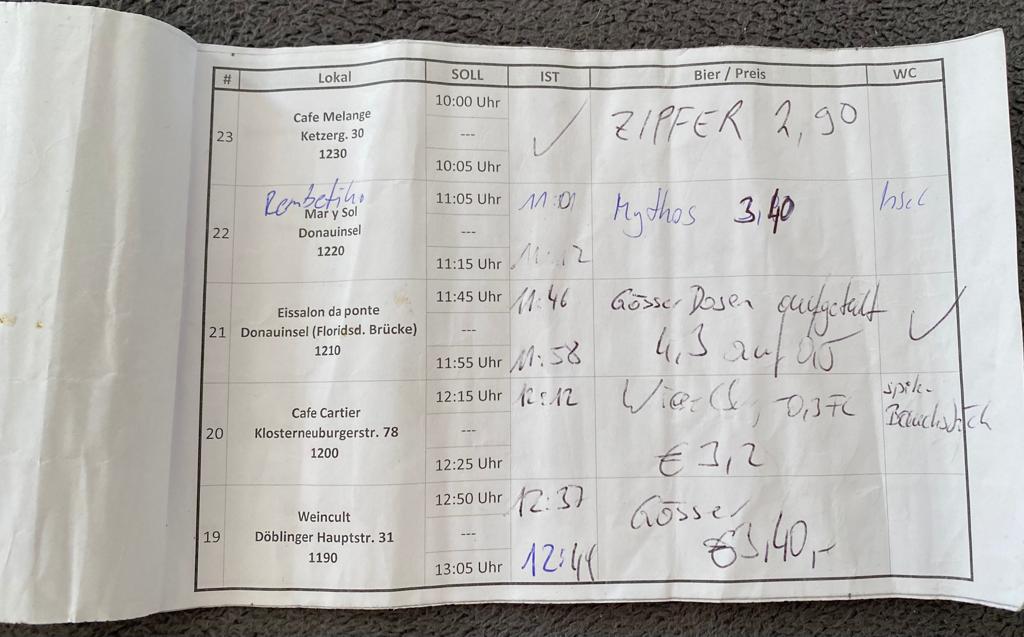 # Lokal SOLL IST Bier / Preis WC
23 Cafe Melange
Ketzerg. 30
1230
10:00 Uhr
---
10:05 Uhr
ZIPFER 2,90
Rembetiko
22 Mar y Sol
Donauinsel
1220
11:05 Uhr
---
11:15 Uhr
11:01
11:12
Mythos 3,40
Insel
21 Eissalon da ponte
Donauinsel (Floridsd. Brücke)
1210
11:45 Uhr
---
11:55 Uhr
11:46
11:58
Gösser Dosen aufgeteilt
4,3 auf 0,5
20 Cafe Cartier
Klosterneuburgerstr. 78
1200
12:15 Uhr
---
12:25 Uhr
12:12
€ 3,2
19 Weincult
Döblinger Hauptstr. 31
1190
12:50 Uhr
---
13:05 Uhr
12:37
12:44
Gösser
€3,40,-